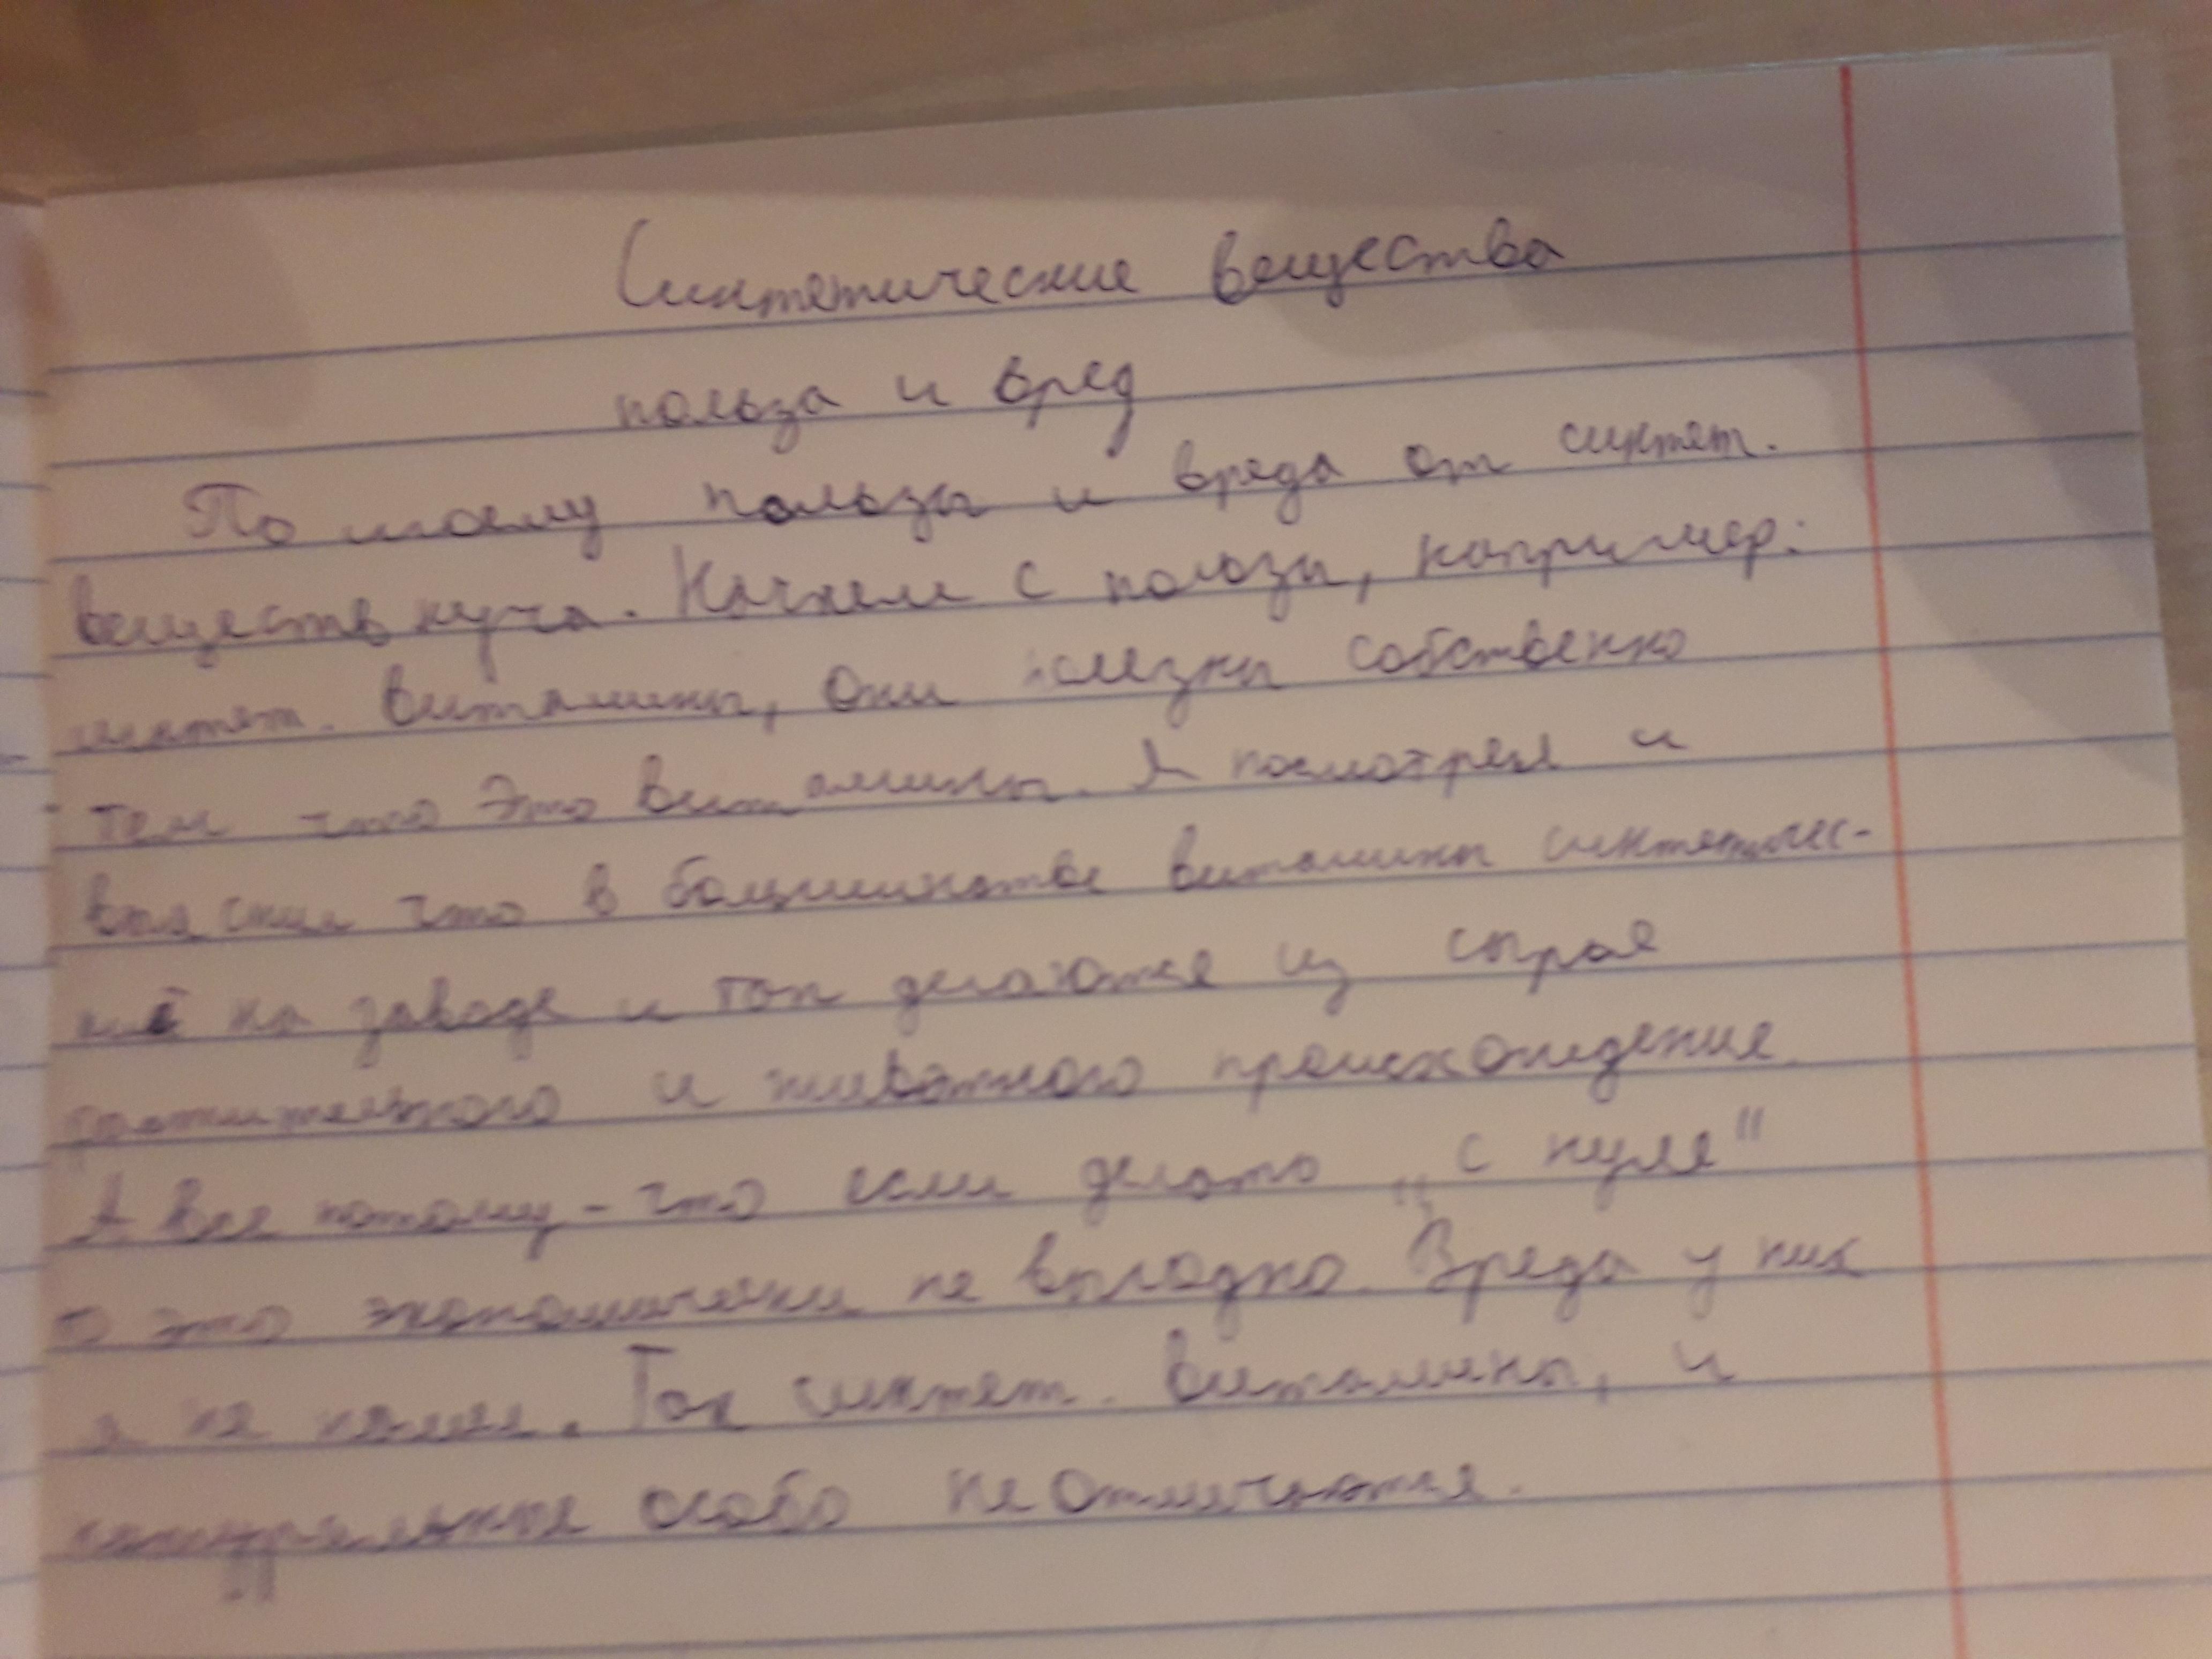 Синтетические вещества
польза и вред
По моему пользы и вреда от синтет.
веществ куча. Начнем с пользы, например:
синтет. витамины, они полезны собственно
тем что это витамины. Я посмотрел и
выяснил что в большинстве витамины синтетичес-
кие на заводе и так делаются из сырья
растительного и животного происхождение.
А все потому-что если делать „с нуля"
то это экономически не выгодно. Вреда у них
я не нашел. Так синтет. витамины, и
натуральные особо не отличаются.